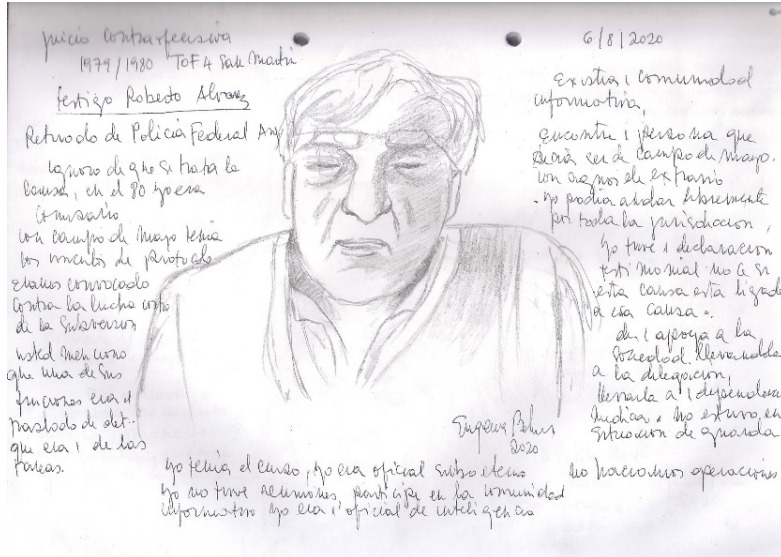 juicio contraofensiva
1979/1980 TOF 4 San Martín
testigo Roberto Alvarez
Retirado de Policía Federal Arg
ignoro de que se trata la
causa, en el 80 yo era
Comisario
con campo de mayo tenia
los de protocolo
convocado
contra la lucha
de la Subversion
usted menciono
que una de sus
funciones era el
traslado de det-
que era 1 de las
tareas.
6/8/2020
Existia 1 comunidad
informativa,
encontre 1 persona que
decia ser de campo de mayo.
con signos de extravio
- yo podia andar libremente
por toda la jurisdiccion,
yo tuve 1 declaracion
testimonial no se si
esta causa esta ligada
a esa causa".
di 1 apoyo a la
Sociedad llevandola
a la delegacion,
llevarla a 1 dependencia
medica" no estuvo en
situacion de guarda
Eugenia
2020
yo tenia el curso, yo era oficial
yo no tuve reuniones, participe en la comunidad
informativa yo era 1 oficial de inteligencia
no haciamos operaciones